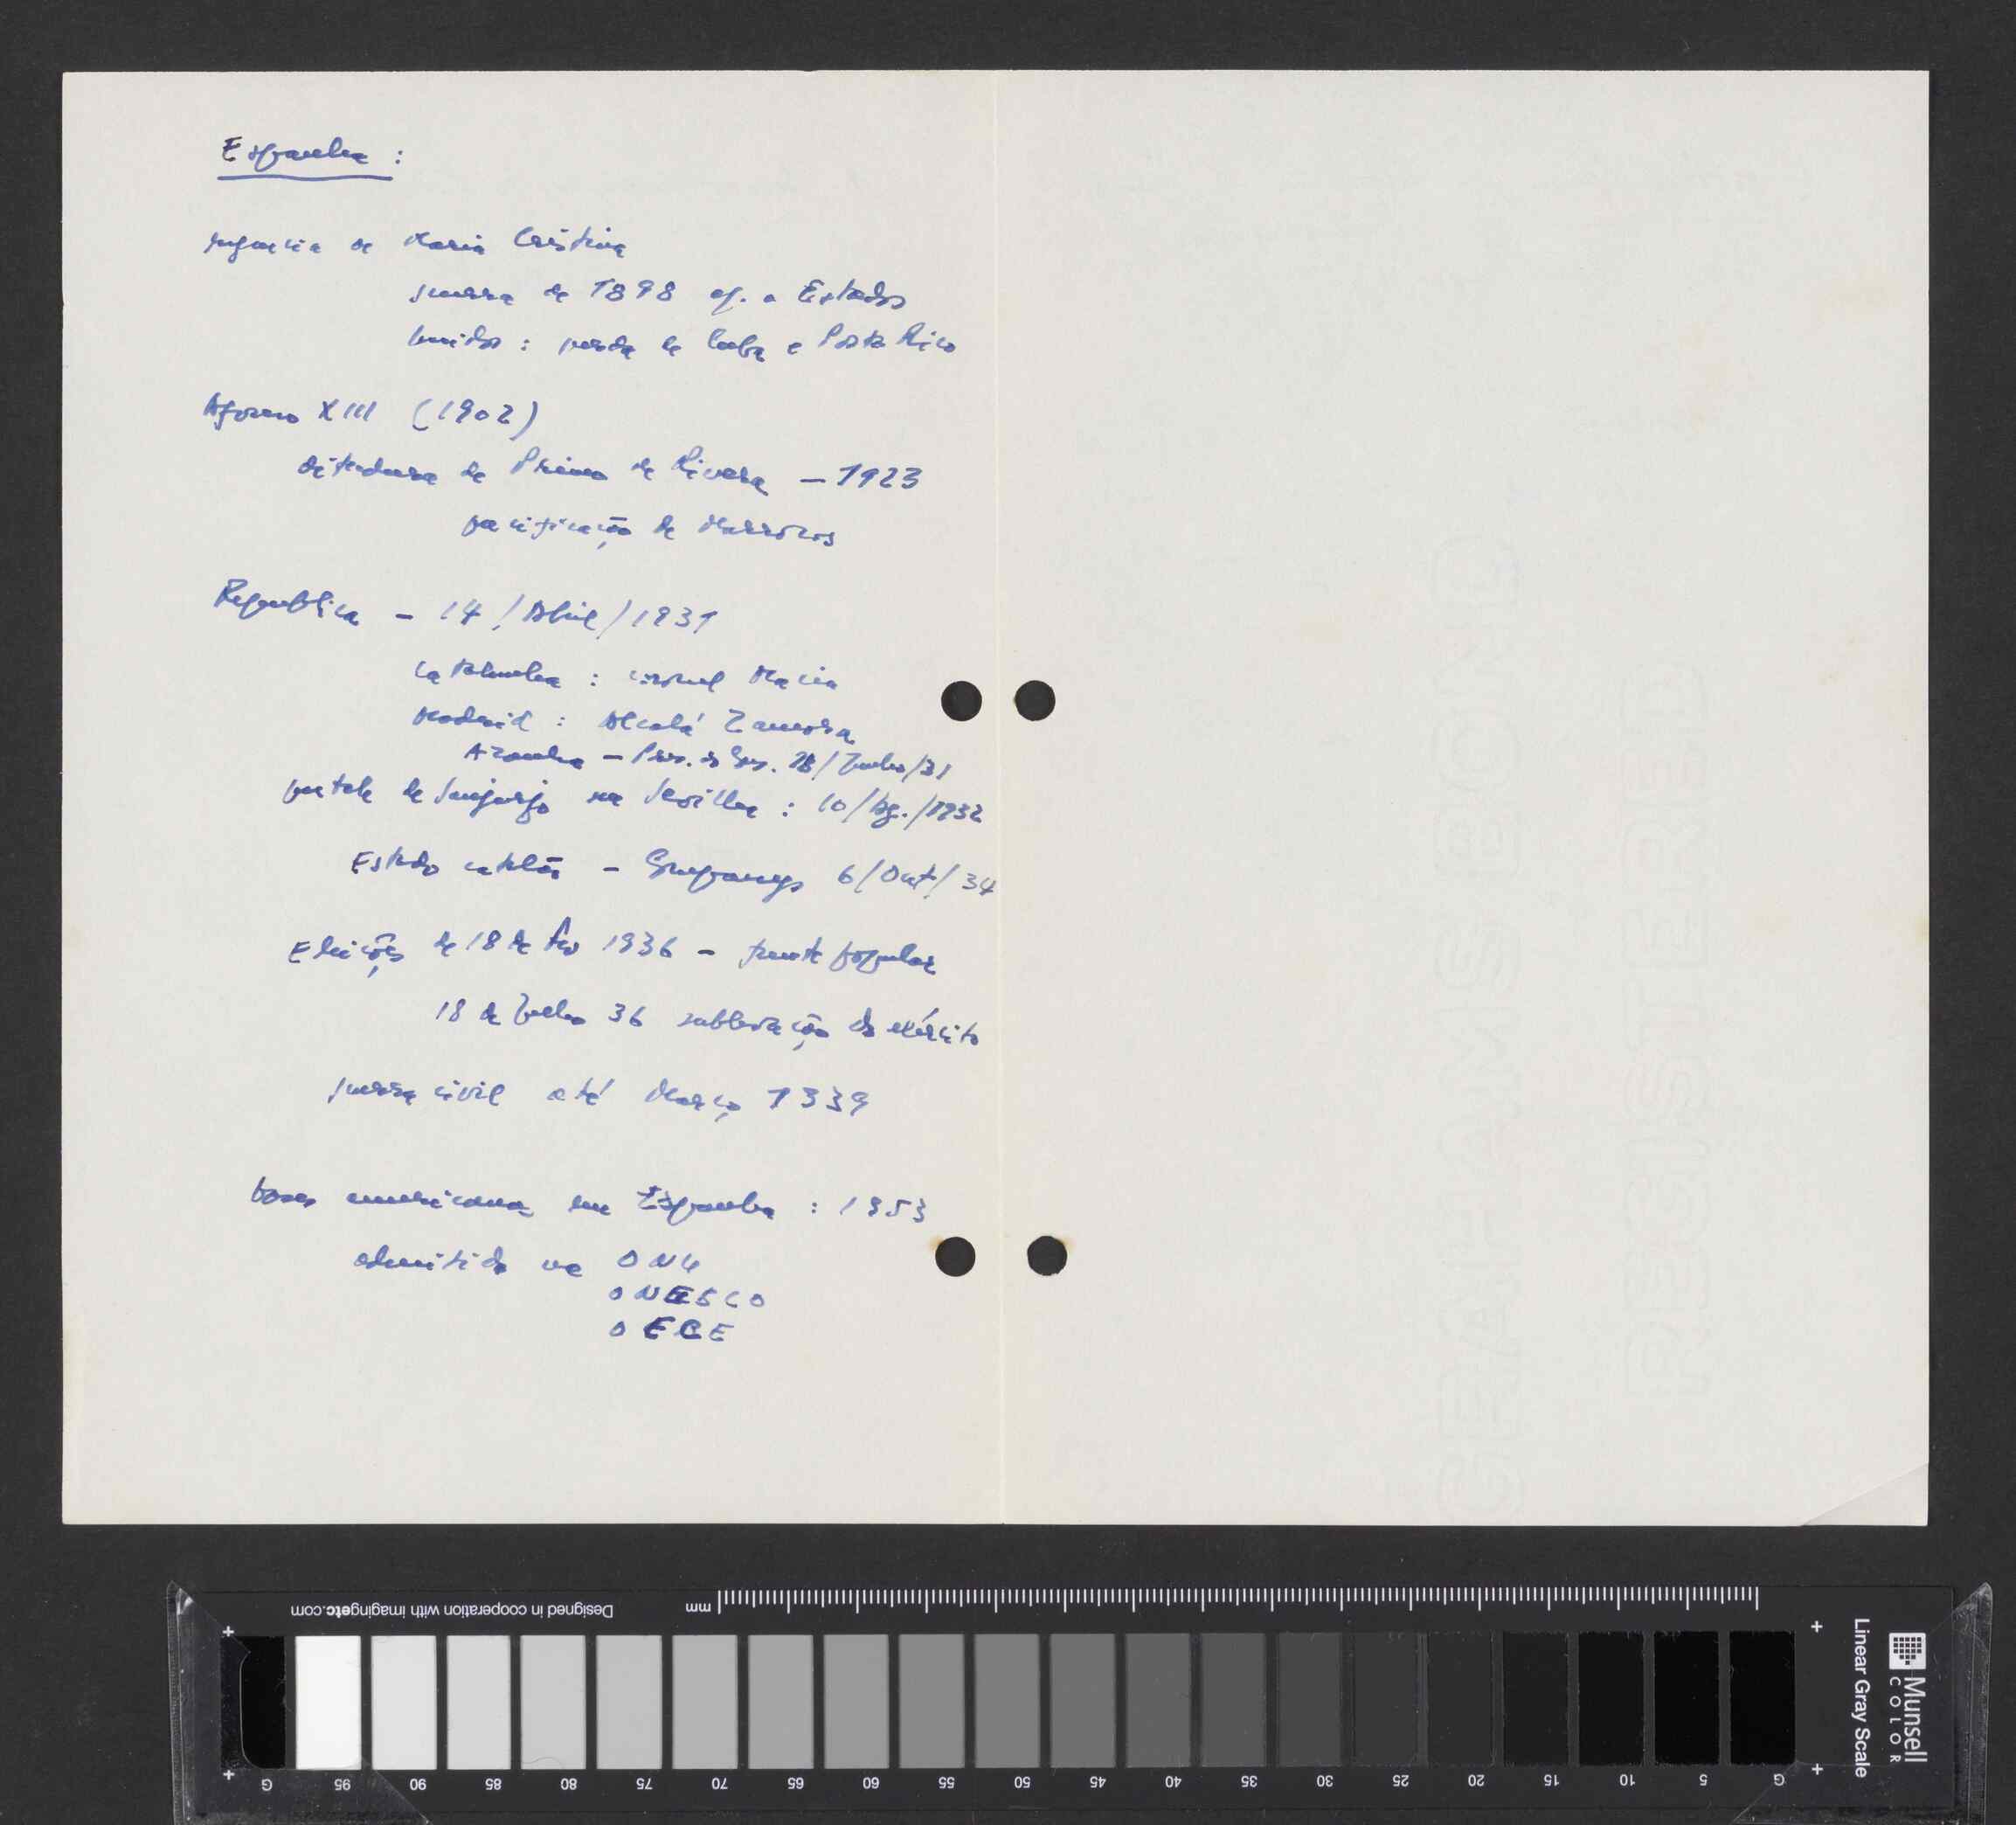 Espanha :
regencia de Maria Cristina
guerra de 1898 c/. a Estados
Unidos : perda de Cuba e Porto Rico
Afonso XIII (1902)
ditadura de Primo de Rivera — 1923
pacificação de Marrócos
Republica — 14 / Abril / 1931
Catalunha : coronel Macia
Madrid : Alcalá Zamora
Azanha — Pres. do Gov. 28 / Junho / 31
de Sanjurjo na Sevilha : 10 / Ag. / 1932
Estado catalão — Companys 6 / Out / 34
Eleições de 18 de Fev 1936 — frente popular
18 de Julho 36 sublevação do exército
guerra civil até Março 1939
bases americanas em Espanha : 1953
admitida na ONU
ONESCO
OECE
GRAHAMS BOND
REGISTERED
Designed in cooperation with imagingetc.com
mm
G 95 90 85 80 75 70 65 60 55 50 45 40 35 30 25 20 15 10 5 G
Linear Gray Scale
Munsell
COLOR